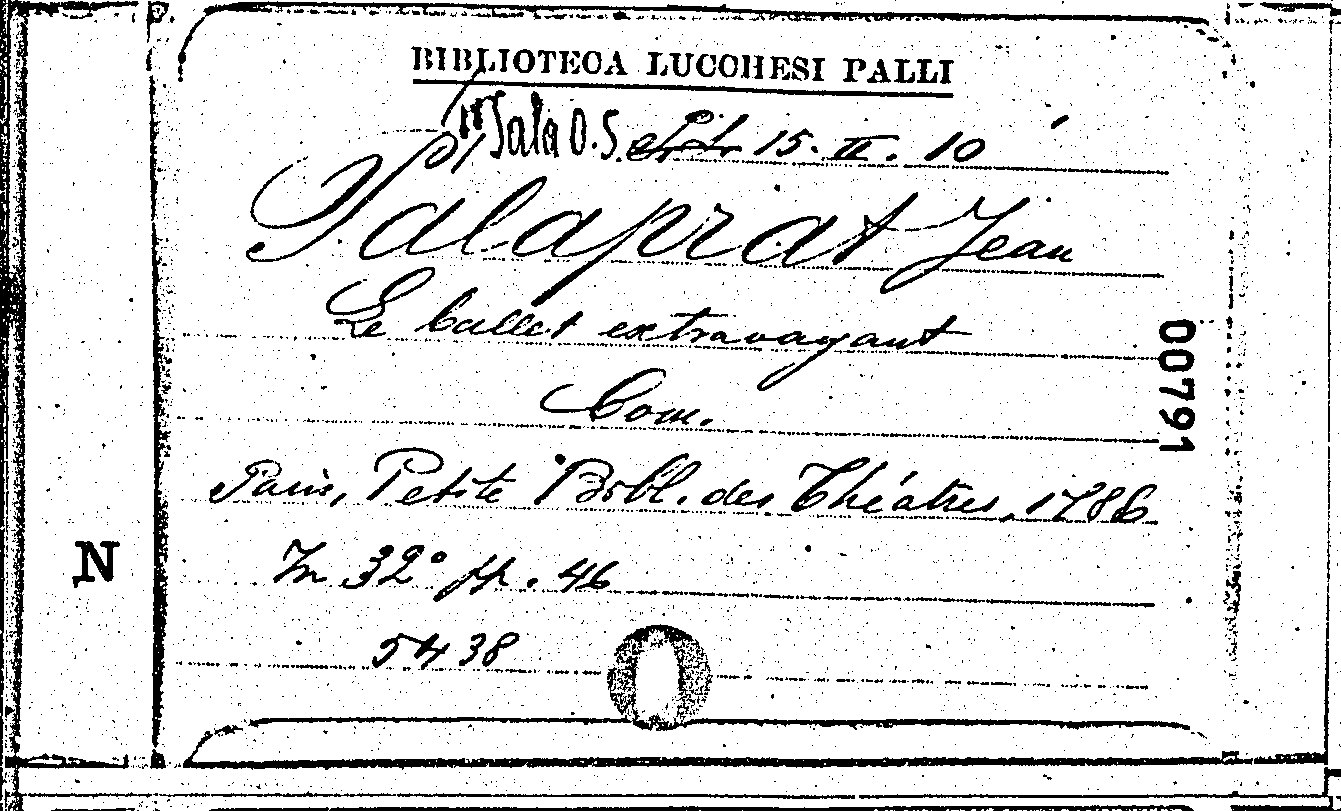 BIBLIOTECA LUCCHESI PALLI
Sala O.S. 15. II. 10
Palaprat Jean
Le ballet extravagant
Com.
Paris, Petite Bibl. des Théâtres, 1786
In 32° pp. 46
5438
00791
N